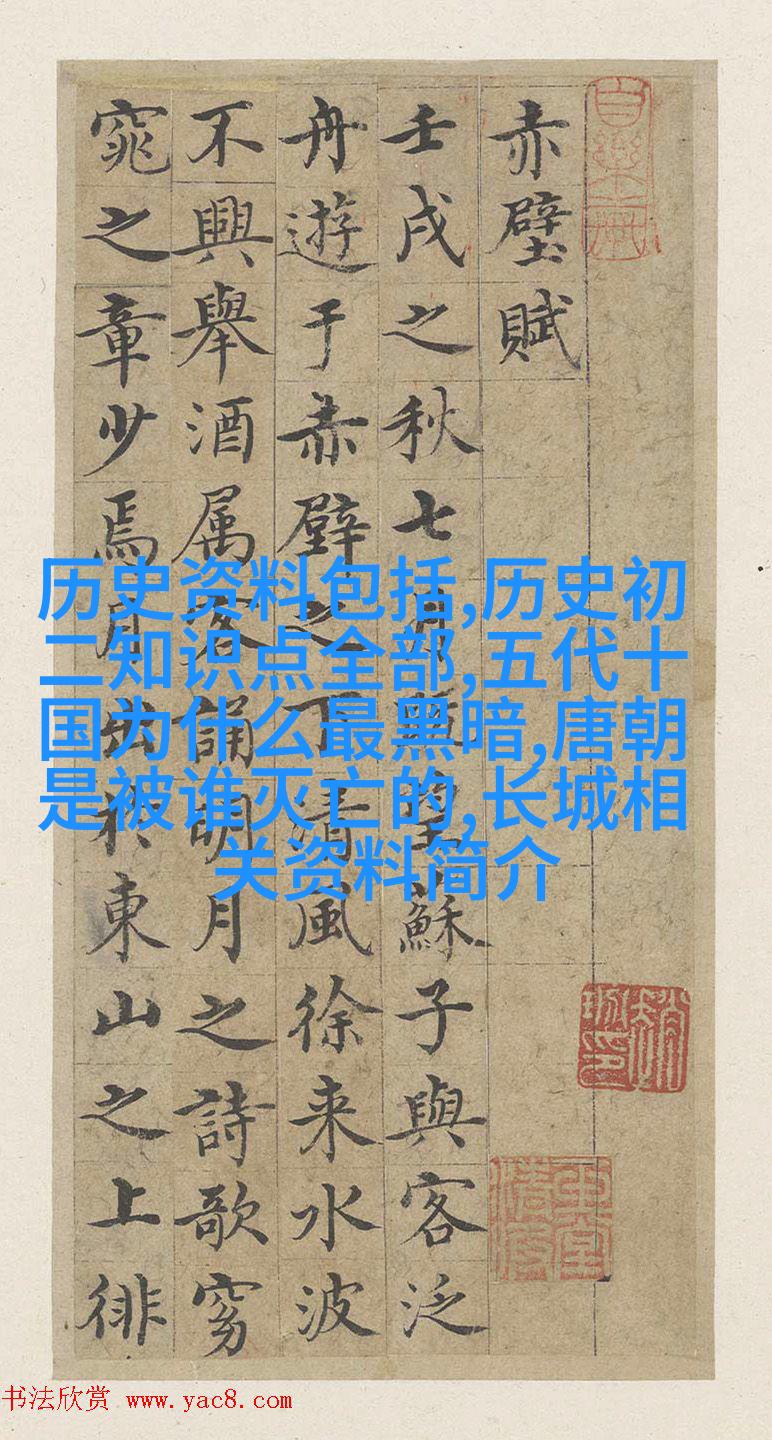 赤壁賦
壬戌之秋七月既望蘇子與客泛
舟遊于赤壁之下清風徐来水波
不興舉酒属客誦明月之詩歌窈
窕之章少焉月出於東山之上徘
历史资料包括,历史初
二知识点全部,五代十
国为什么最黑暗,唐朝
是被谁灭亡的,长城相
关资料简介
书法欣赏 www.yac8.com